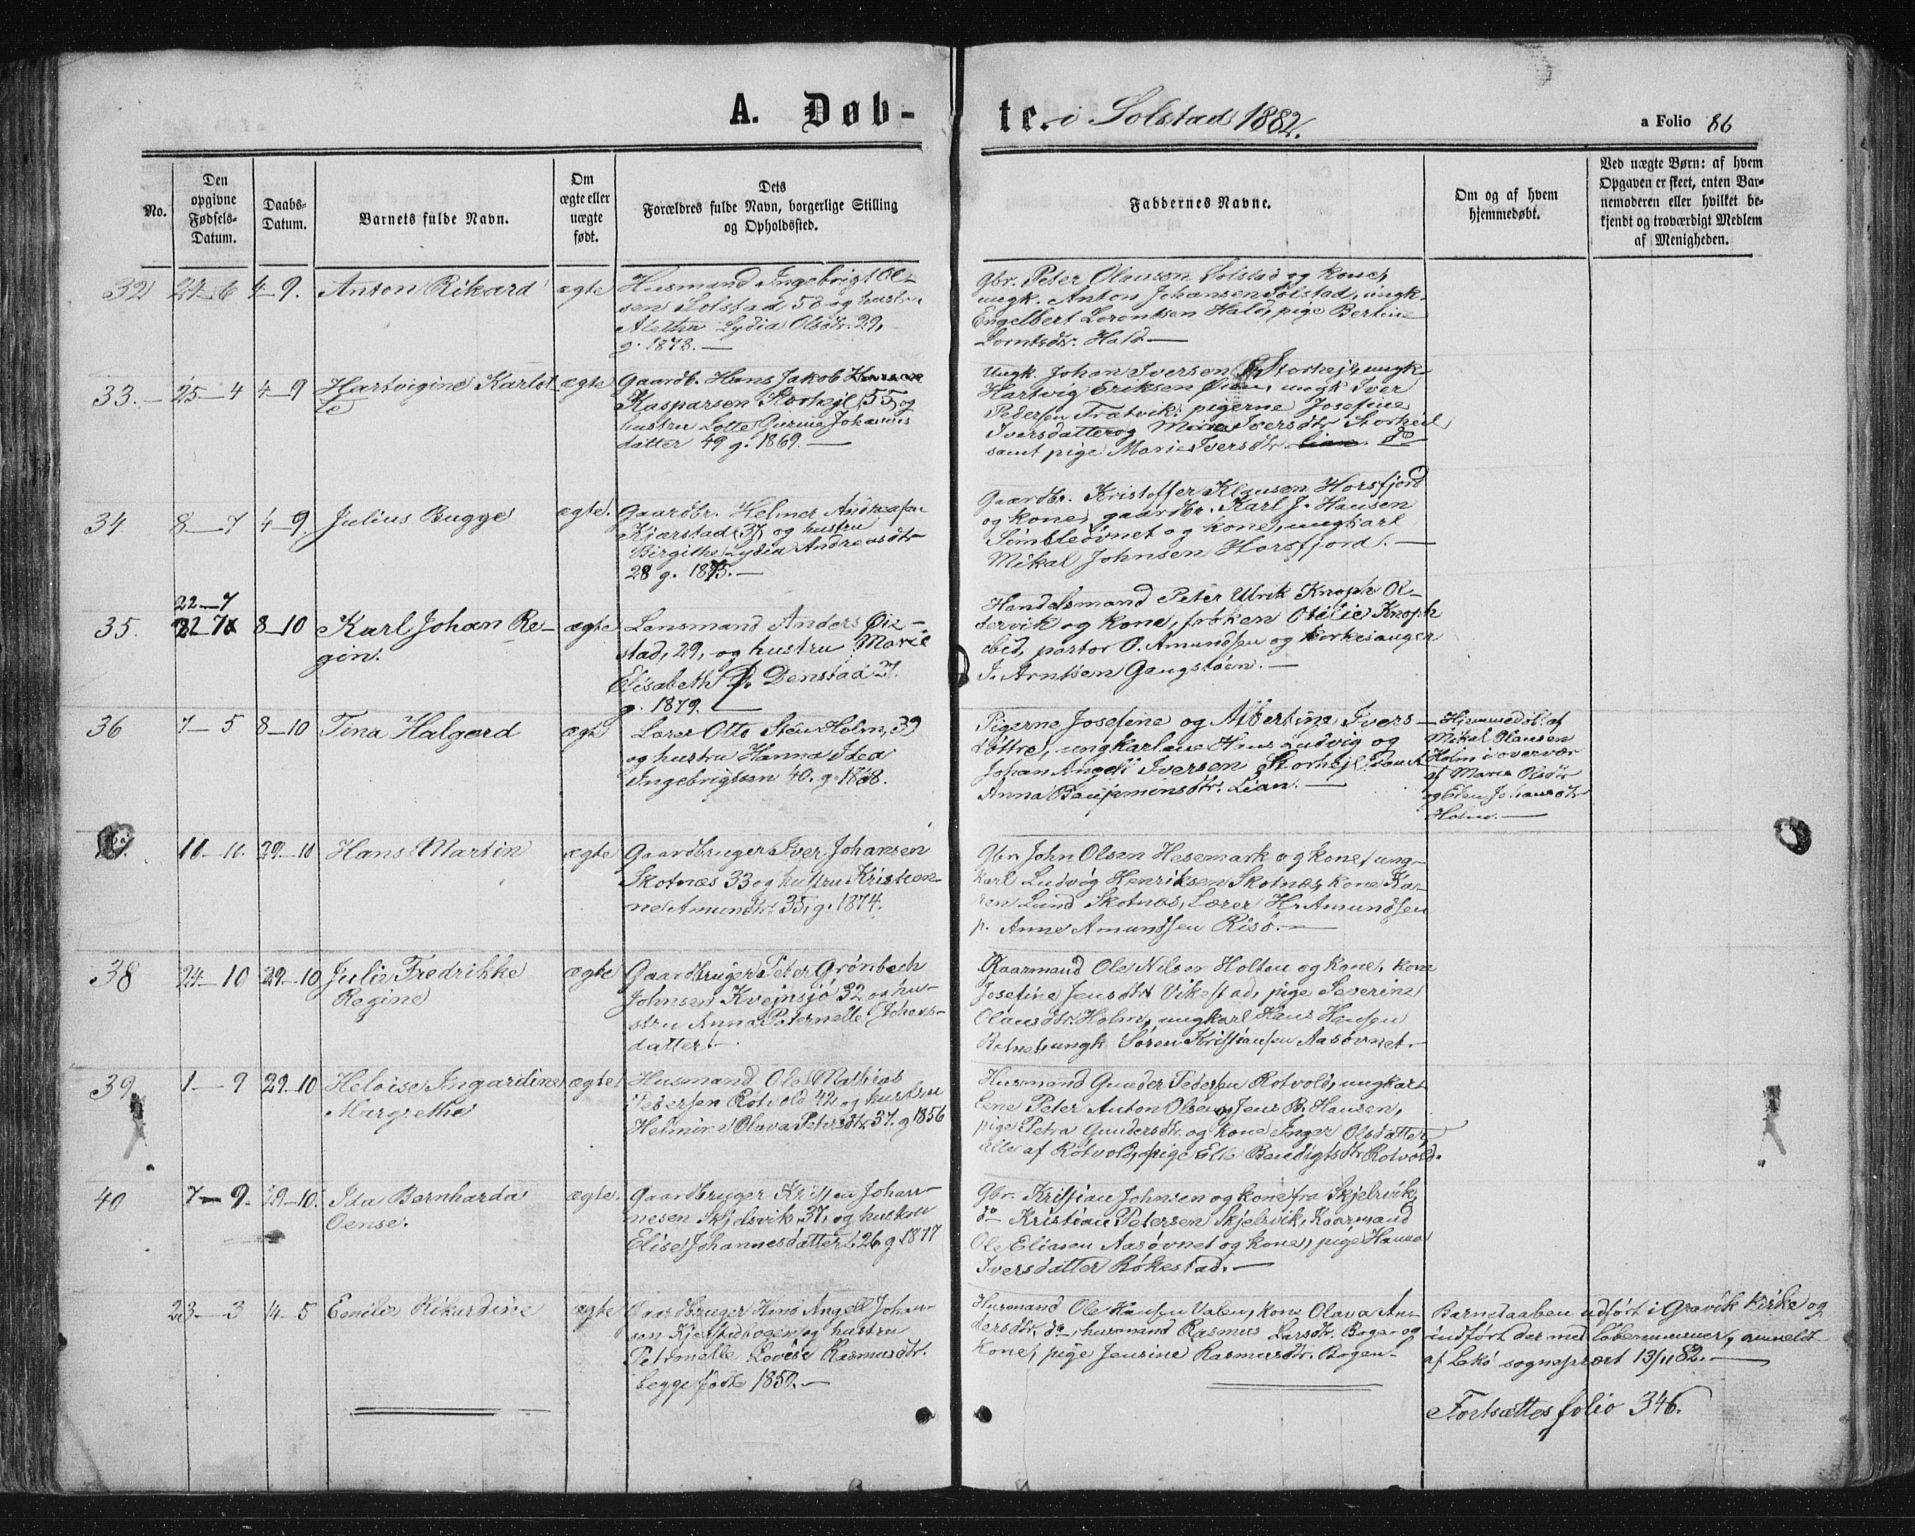 A. Døb-
te. i Solstad 1882.
a Folio 86
No.
Den
opgivne
Fødsels-
Datum.
Daabs-
Datum.
Barnets fulde Navn.
Om
ægte eller
uægte
født.
Dets
Forældres fulde Navn, borgerlige Stilling
og Opholdssted.
Faddernes Navne.
Om og af hvem
hjemmedøbt.
Ved uægte Børn: af hvem
Opgaven er skeet, enten Bar-
nemoderen eller hvilket be-
kjendt og troværdigt Medlem
af Menigheden.
32 24–6 4–9. Anton Rikard ægte
Husmand Ingebrigt Ol-
sen Solstad 58 og hustru
Alethe Lydia Olsdtr. 29,
g. 1878. —
Gbr. Peter Olausen Solstad og kone,
ungk. Anton Johansen Solstad, ungk.
Engelbert Lorentsen Hald, pige
Lorntsdtr. Hald —
33. 25–4 4–9 Hartvigine Karlot-
te
ægte
Gaardb. Hans Jakob
Kasparsen Storhejl (55) og
hustru Lotte Gurine Johannes
datter 49 g. 1869. —
Ungk. Johan Iversen Storhejl, ungk.
Hartvig Eriksen ungk Iver
Pedersen pigerne Josefine
Iversdatter og Iversdtr Storheil
samt pige Marie Iversdtr do
34 8–7 4–9. Julius Bugge ægte.
Gaardbr. Helmer Andreasen
Kjærstad (37) og hustru
Birgithe Lydia Andreasdtr
28 g. 1875. —
Gaardbr. Kristoffer Klausen Horsfjord
og kone, gaardbr. Karl J. Hansen
Simbleøvnet og kone, ungkarl
Mikal Johnsen Horsfjord. —
35. 22–7
8–10 Karl Johan Re-
gin.
ægte
Lensmand Anders Øie-
stad, 29, og hustru Marie
Elisabeth Denstad 27.
g. 1879. —
Handelsmand Peter Ulrik Knoph Ol-
dervik og kone, frøken Otilie Knoph
ibid, pastor O. Amundsen og kirkesanger
J. Arntsen Gangstøen. —
36 7–5 8–10 Tina Halgerd ægte
Lærer Otto Steen Holm, 39
og hustru Hanna Idea
Ingebrigtsen 40. g. 1868.
Pigerne Josefine og Albertina Ivers-
døttre, ungkarlene Hans Ludvig og
Johan Angell Iversen Storhejl samt
Anna Benjaminsdtr. Lian. —
Hjemmedøbt af
Mikal Olausen
Holm i overvær
af Maria Olsdtr
og Johansdtr
Holm. —
29–10 Hans Martin ægte
Gaardbruger Iver Johansen
Skotnæs 33 og hustru Kristian-
ne Amundsdtr 35, g. 1874.
Gbr. John Olsen Hesemark og kone, ung-
karl Ludvig Henriksen Skotnæs, kone Ka-
ren Lund Skotnæs, Lærer H. Amundsen
p. Anne Amundsen Risø. —
38 24–10 29–10 Julie Fredrikke
Regine
ægte
Gaardbruger Peter Grønbech
Johnsen Kvejnsjø 32 og hu-
stru Anna Peternelle Johans-
datter. —
Kaarmand Ole Nilsen Holten og kone, kone
Josefine Jensdtr Vikestad, pige Severine
Olausdtr. Holm, ungkarl Hans Hansen
Botnet, ungk. Søren Kristiansen Aasøvnet. —
39 1–9 29–10 Heloise Ingardine
Margrethe
ægte
Husmand Ole Mathias
Pedersen Rotvold 42 og hustru
Helmine Olava Petersdtr 37. g 1856
Husmand Gunder Pedersen Rotvold, ungkarl
lene Peter Anton Olsen og Jens B. Hansen,
pige Petra Gundersdtr. og kone Inger Olsdatter,
alle af Rotvold, pige Else Bendigtsdtr Rotvold.
40 7–9. 29–10. Ida Bernharda
Oense.
ægte.
Gaardbruger Kristen Johan-
nesen Skjelsvik, 37, og hustru
Elise Johannesdatter 26 g 1877
Gbr. Kristian Johnsen og kone fra Skjelsvik,
do Kristian Petersen Skjelsvik, Kaarmand
Ole Eliasen Aasøvnet og kone, pige Hanna
Iversdatter Røkestad. —
23–3 14–5 Emilie Rikardine ægte
Gaardbruger Hans Angell Johan-
sen Kjerstadbogen og hustru
Petronelle Lovise Rasmusdtr.
begge født 1850. —
Husmand Ole Hansen Valen, kone Olava An-
dersdtr. do, husmand Rasmus Larsdtr. Bogen og
Kone, pige Jensine Rasmusdtr. Bogen.
Barnedaaben udført i Gravik Kirke og
indført der med løbenummer, anmeldt
af Lekø sogneprest 13/11 82. —
Fortsættes folio 346.